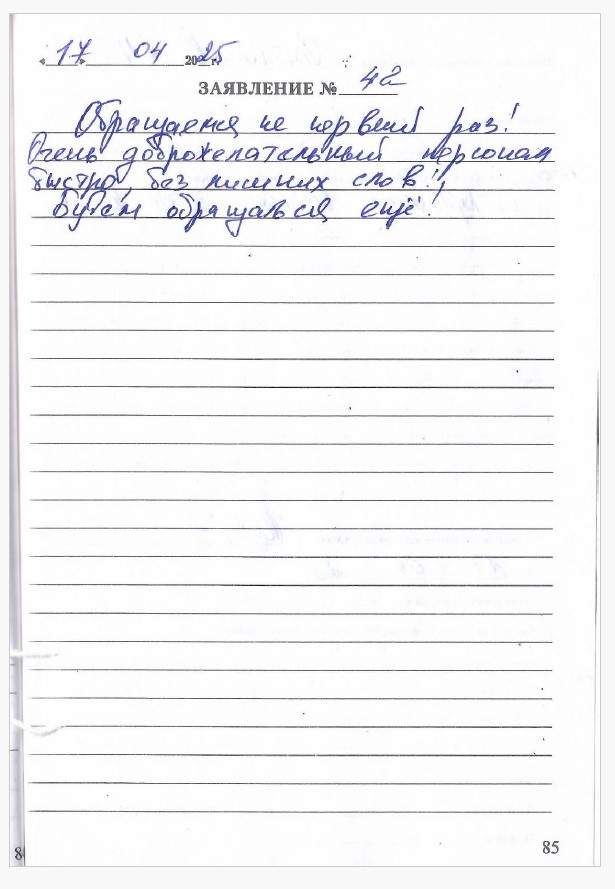 « 17 » 04 2025 г.
ЗАЯВЛЕНИЕ № 42
Обращаемся не первый раз!
Очень доброжелательный персонал
быстро, без лишних слов!!,
Будем обращаться ещё!
85